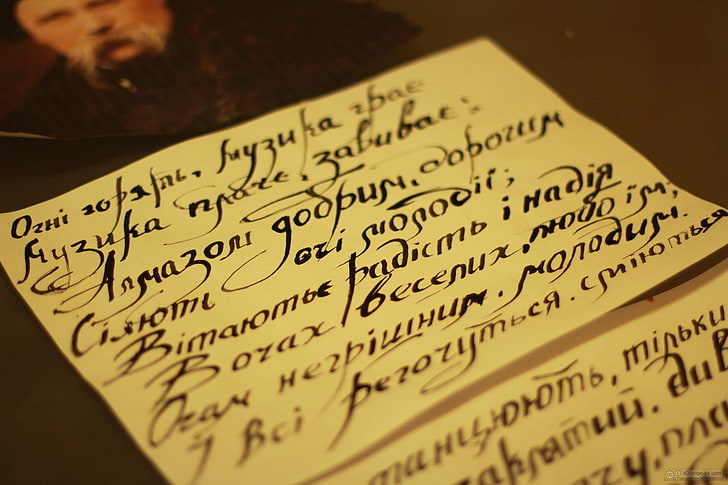 Огні горять, музика грає
Музика плаче, завиває;
Алмазом добрим, дорогим
Сіяють очі молодії;
Вітаютьє радість і надія
В очах веселих, любо їм;
Очам негрішним, молодим.
І всі регочуться, сміються
танцюють, тільки
заклятий. див
чу, пла